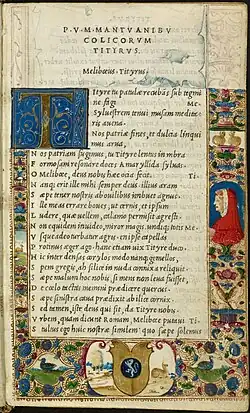 P. V. M. MANTVANI BV
COLICORVM
TITIRVS.
Meliboeus. Tityrus.
Tityre tu patulæ recubans sub tegmi
ne fagi Me.
Syluestrem tenui musam medite
ris auena.
Nos patriæ fines, et dulcia linqui
mus arua,
N os patriam fugimus, tu Tityre lentus in umbra
F ormosam resonare doces Amaryllida syluas.
O Meliboee, deus nobis hæc ocia fecit. Ti.
N anq; erit ille mihi semper deus. illius aram
S æpe tener nostris ab ouilibus imbuet agnus.
I lle meas errare boues, ut cernis, et ipsum
L udere, quæ uellem, calamo permisit agresti.
N on equidem inuideo, miror magis. undiq; totis Me.
V sque adeo turbatur agris. en ipse capellas
P rotinus æger ago. hanc etiam uix Tityre duco.
H ic inter densas corylos modo nanq; gemellos,
S pem gregis, ah silice in nuda connixa reliquit.
S æpe malum hoc nobis, si mens non leua fuisset,
D e coelo tactas memini prædicere quercus.
S æpe sinistra caua prædixit ab ilice cornix.
S ed tamen, iste deus qui sit, da Tityre nobis.
V rbem, quam dicunt Romam, Meliboee putaui Ti.
S tultus ego huic nostræ similem: quo sæpe solemus